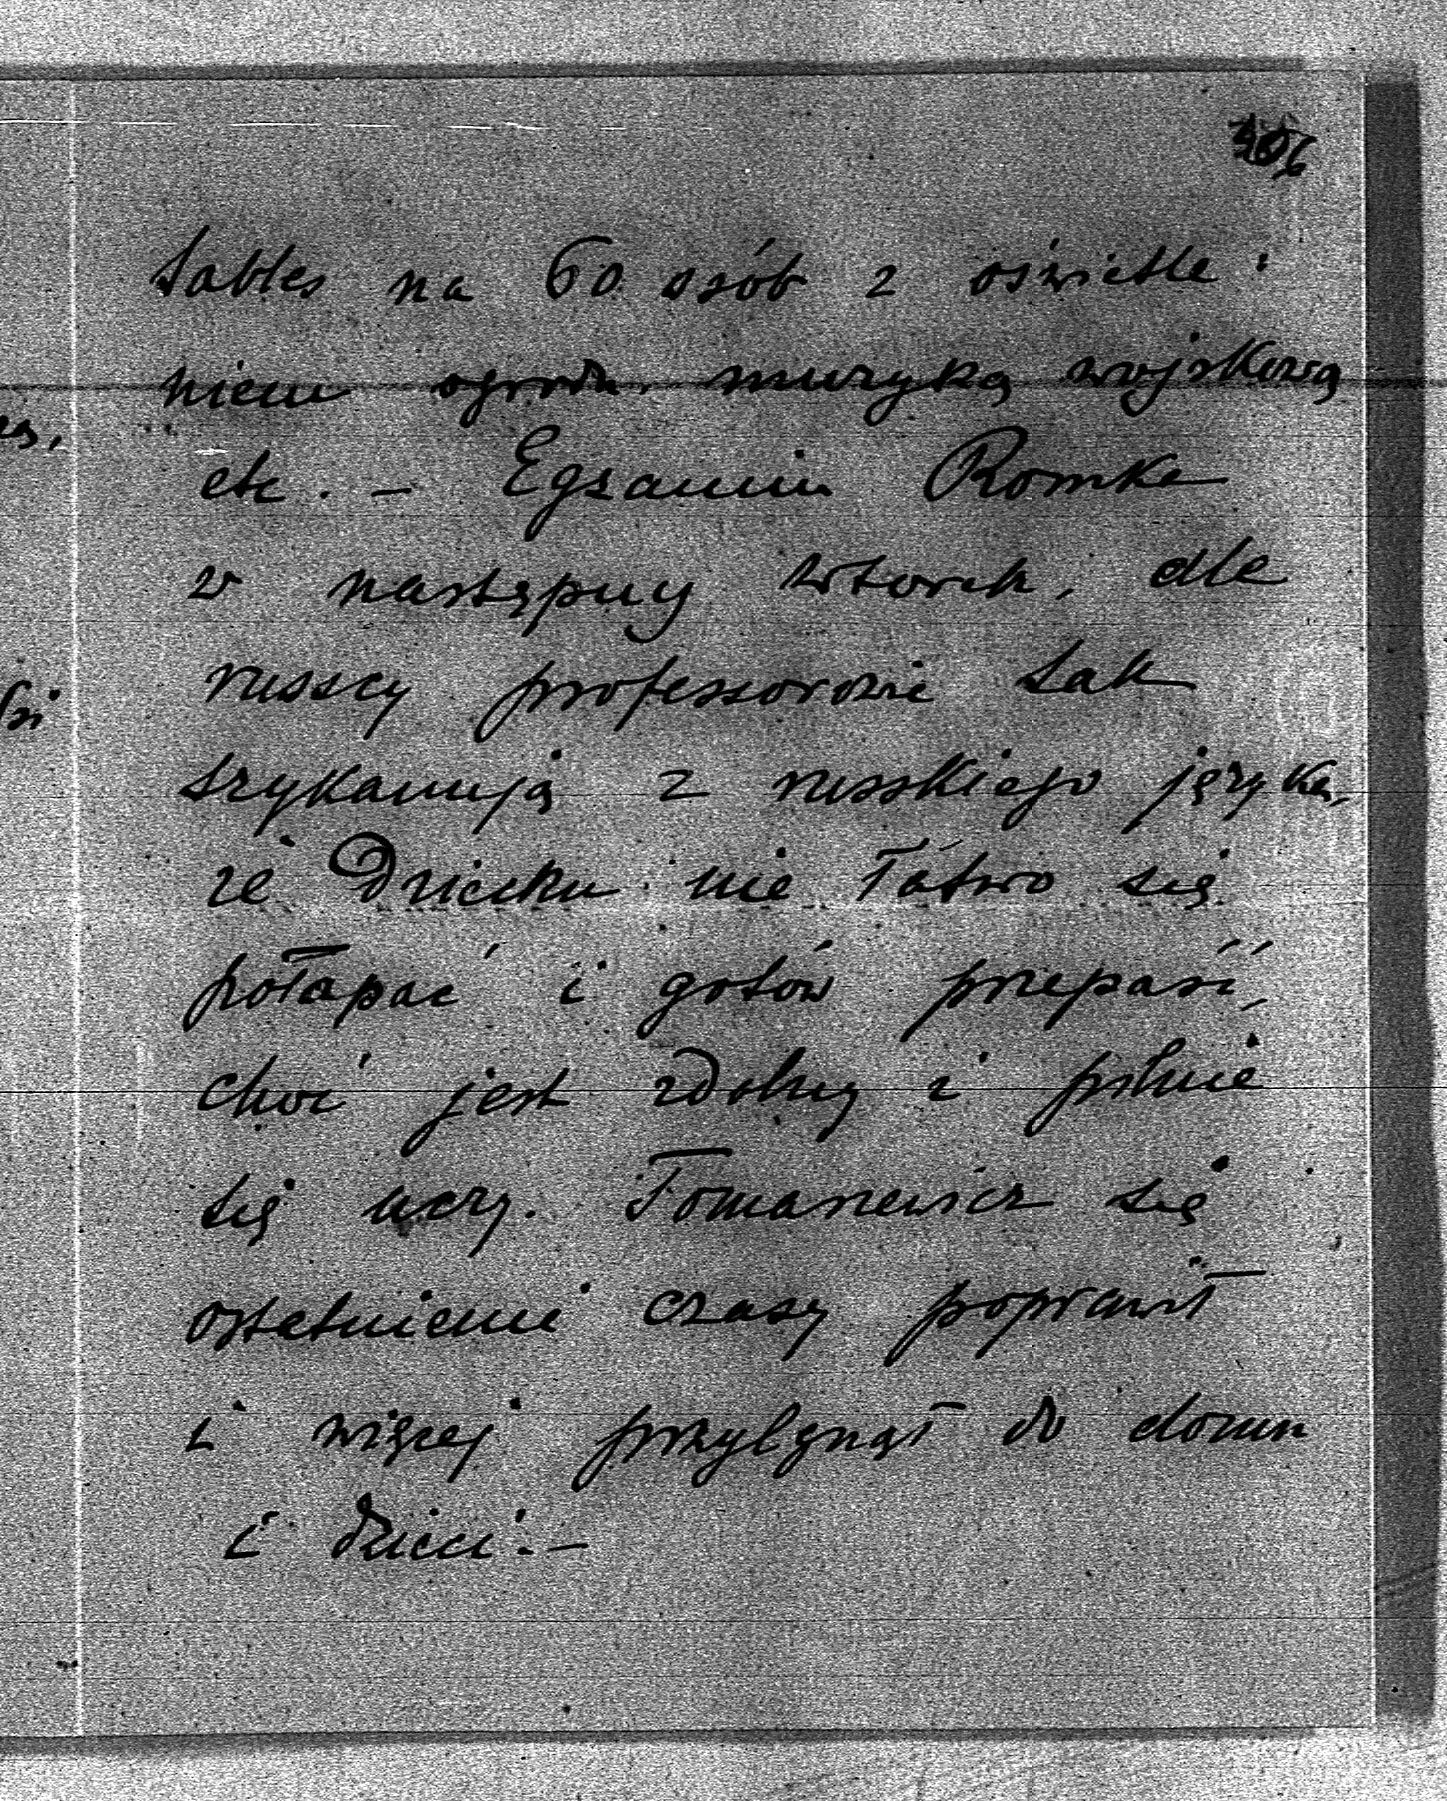 406
tables na 60 osób z oświetle-
niem ogrodu, muzyką wojskową
etc. – Egzamin Romka
w następny wtorek, ale
russcy professorowie tak
szykanują z russkiego języka,
że Dziecku nie łatwo się
połapać i gotów przepaść,
choć jest zdolny i pilnie
się uczy. Tomaszewicz się
ostatniemi czasy poprawił
i więcej przylgnął do domu
i dzieci. –